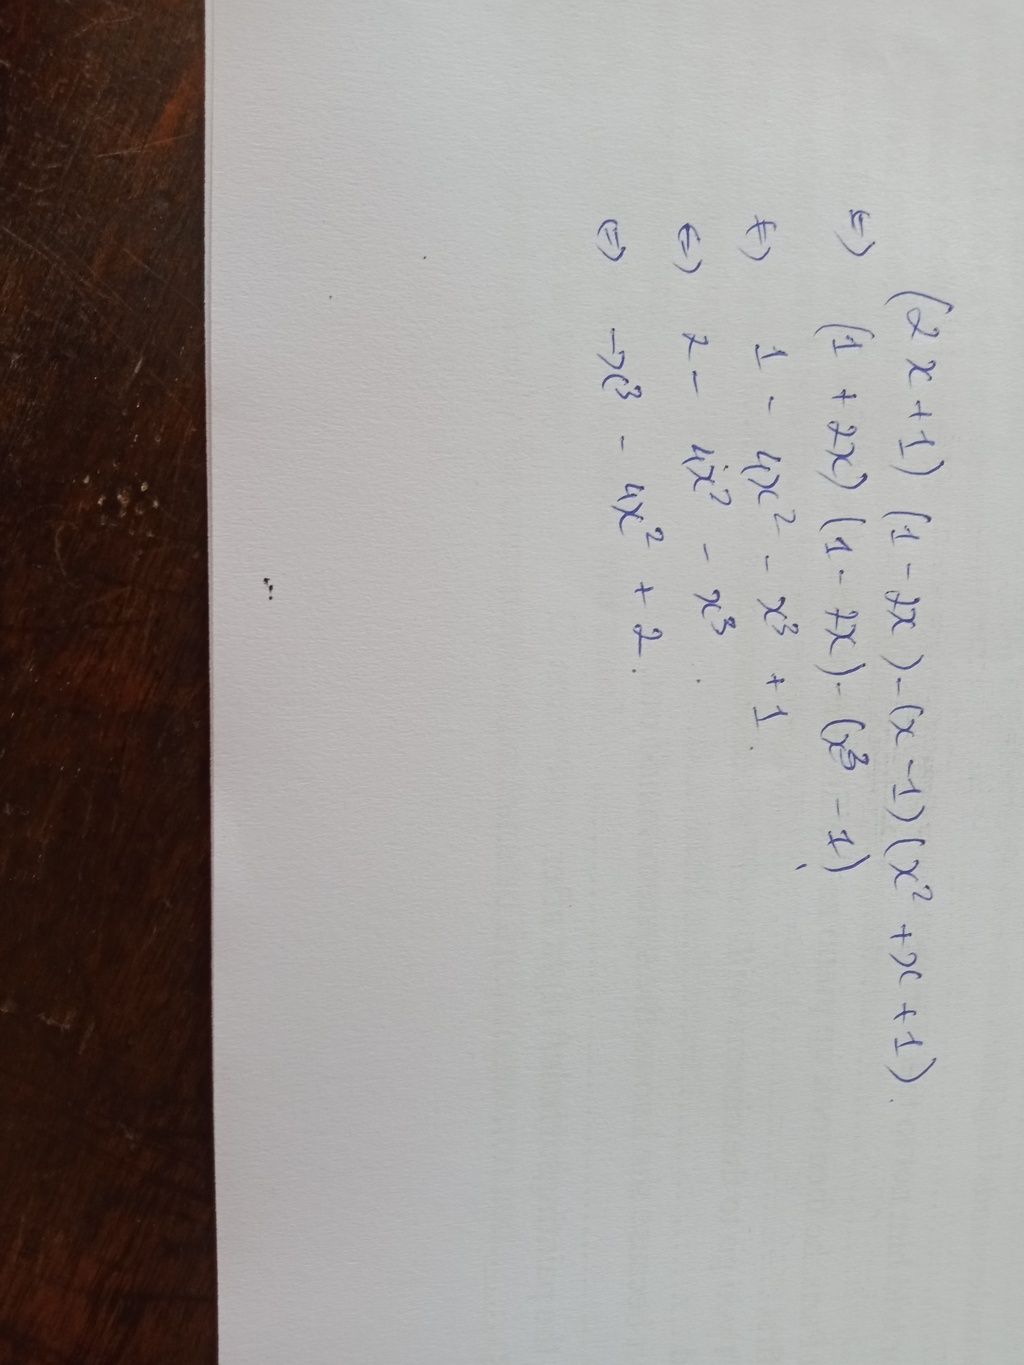 (2x+1)(1-2x)-(x-1)(x²+x+1)
⇔) (1+2x)(1-2x)-(x³-1)
⇔) 1-4x²-x³+1
⇔) 2-4x²-x³
⇔) -x³-4x²+2